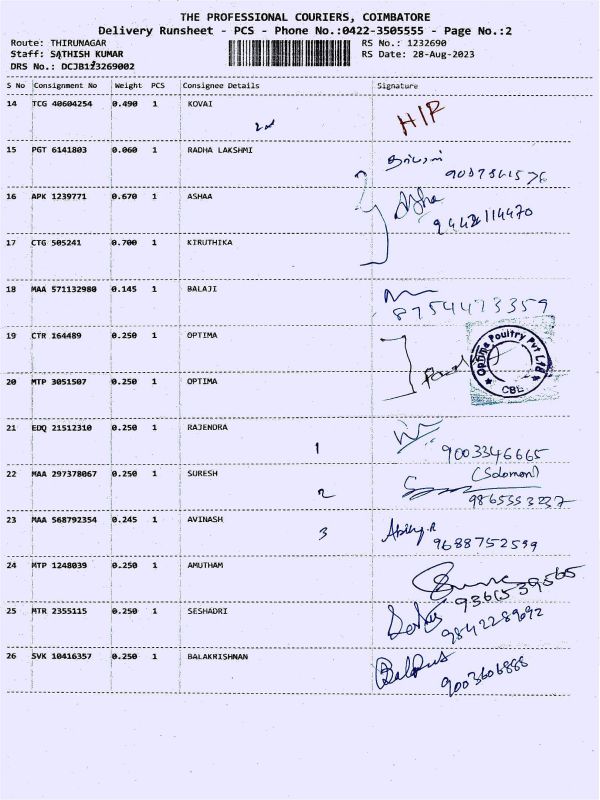 THE PROFESSIONAL COURIERS, COIMBATORE
Delivery Runsheet - PCS - Phone No.:0422-3505555 - Page No.:2
Route: THIRUNAGAR RS No.: 1232690
Staff: SATHISH KUMAR RS Date: 28-Aug-2023
DRS No.: DCJB113269002
S No Consignment No Weight PCS Consignee Details Signature
14 TCG 40604254 0.490 1 KOVAI
2nd
15 PGT 6141803 0.060 1 RADHA LAKSHMI
16 APK 1239771 0.670 1 ASHAA Asha
17 CTG 505241 0.700 1 KIRUTHIKA
18 MAA 571132980 0.145 1 BALAJI
8754473359
19 CTR 164489 0.250 1 OPTIMA
Optima Poultry Pvt Ltd
CBE
20 MTP 3051507 0.250 1 OPTIMA
21 EDQ 21512310 0.250 1 RAJENDRA
1 9003346665
22 MAA 297378067 0.250 1 SURESH (Solomon)
2
23 MAA 568792354 0.245 1 AVINASH
3 9688752599
24 MTP 1248039 0.250 1 AMUTHAM
25 MTR 2355115 0.250 1 SESHADRI
9842289692
26 SVK 10416357 0.250 1 BALAKRISHNAN
9003606888